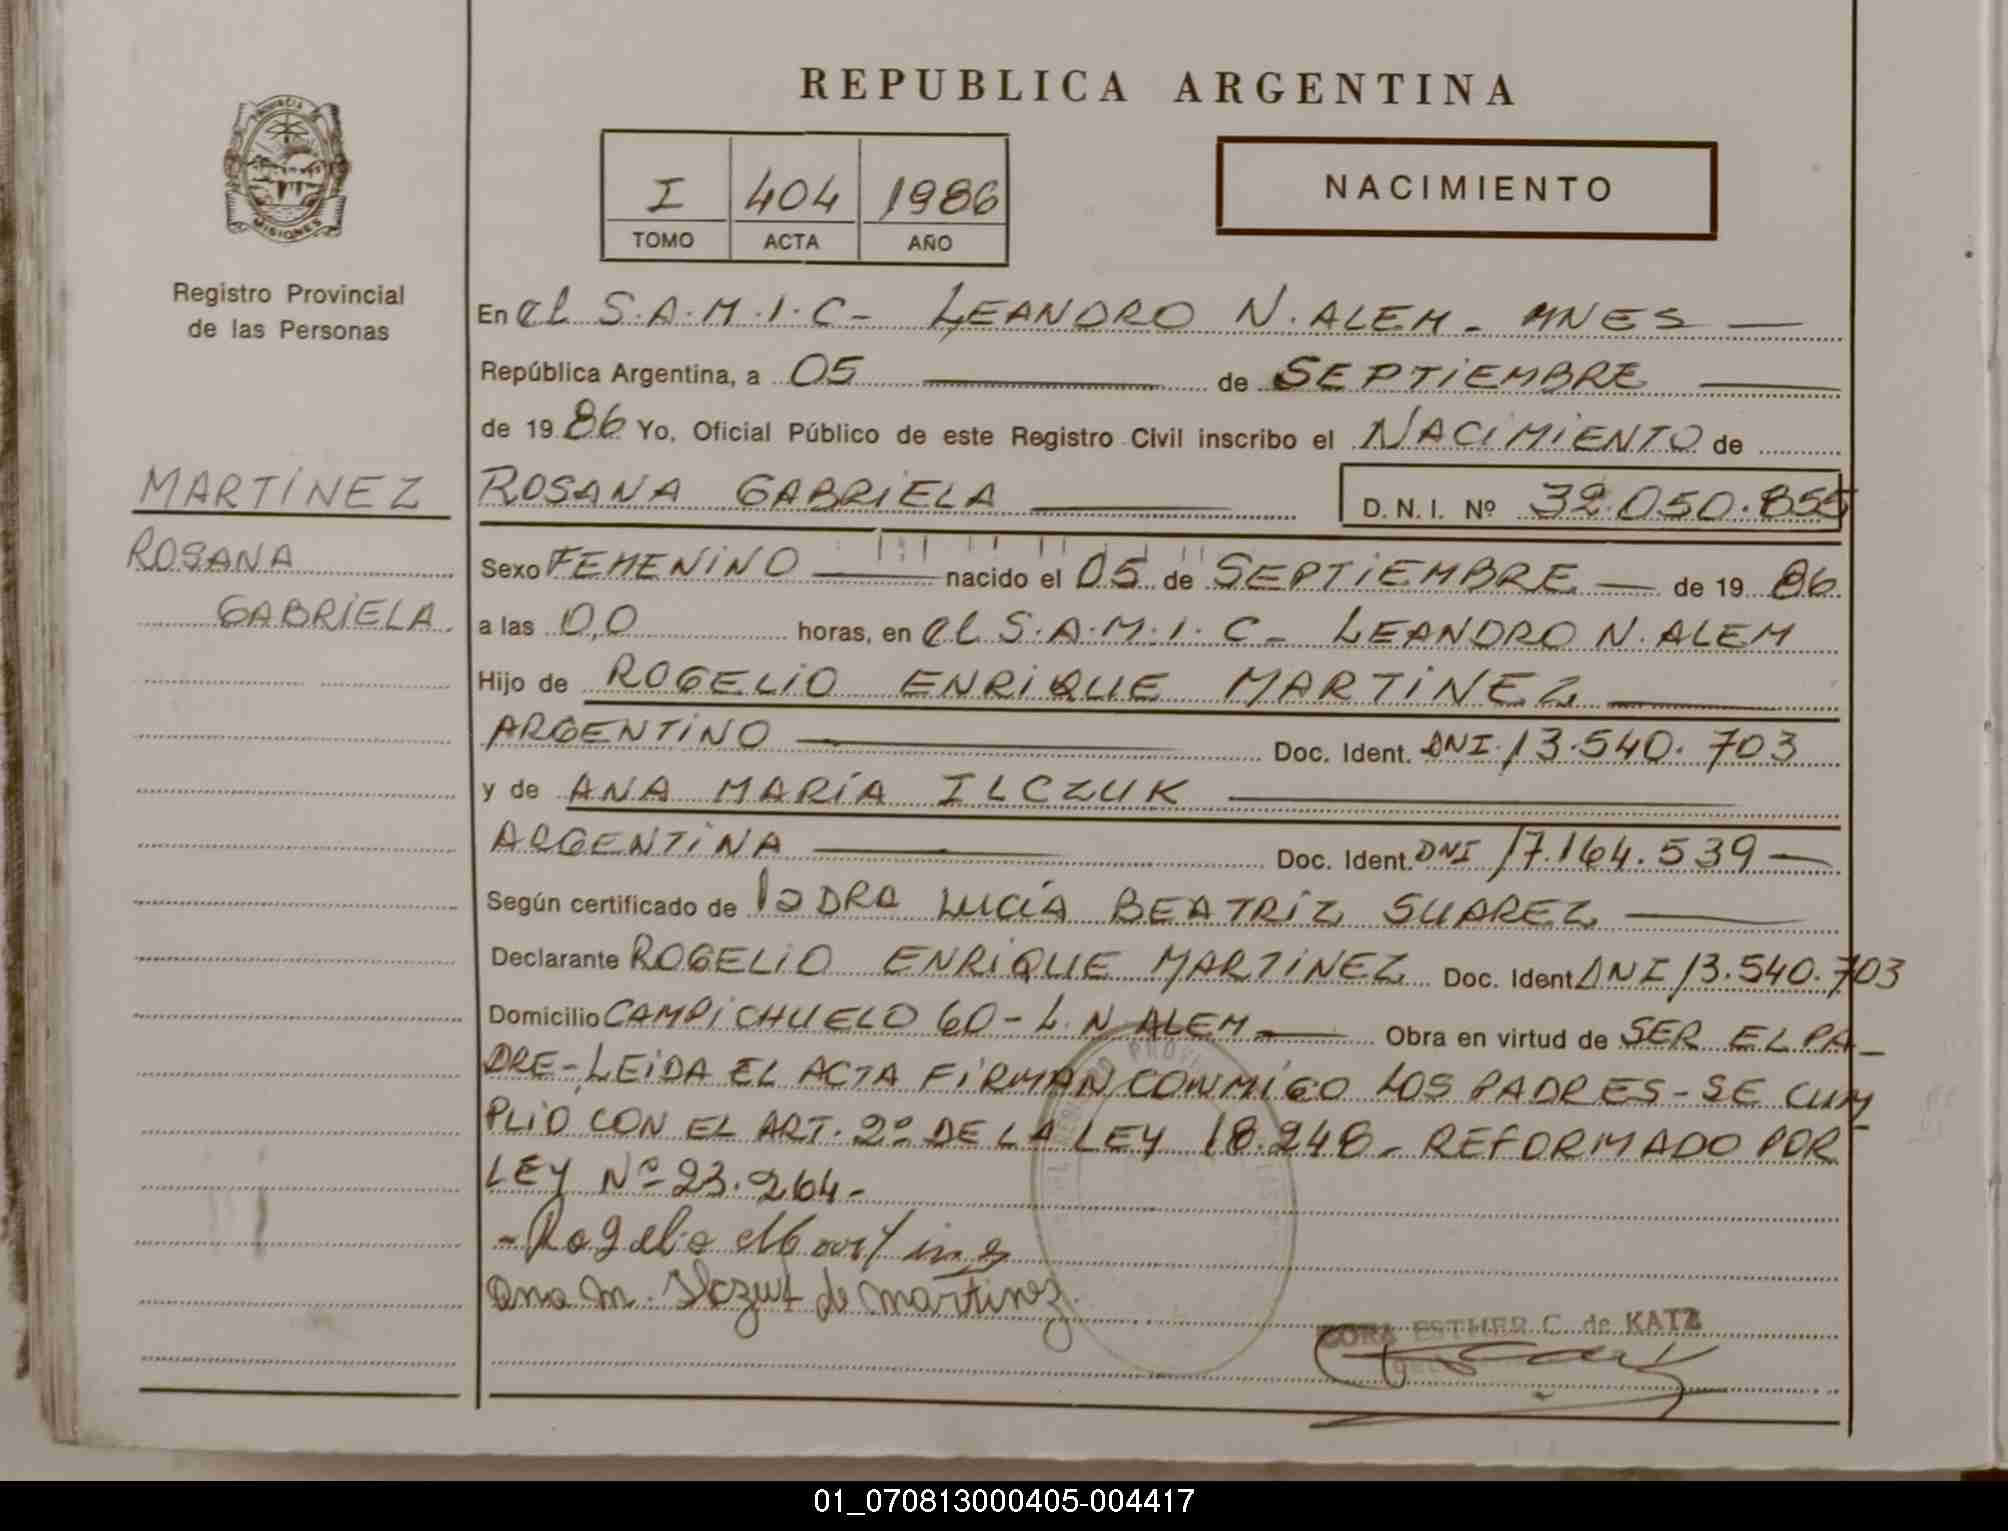 REPUBLICA ARGENTINA
I 404 1986
TOMO ACTA AÑO
NACIMIENTO
PROVINCIA DE
MISIONES
Registro Provincial
de las Personas
MARTÍNEZ
ROSANA
GABRIELA
En el S.A.M.I.C- LEANDRO N. ALEM - MNES
República Argentina, a 05 de SEPTIEMBRE
de 1986 Yo, Oficial Público de este Registro Civil inscribo el NACIMIENTO de
ROSANA GABRIELA D.N.I. Nº 32.050.855
Sexo FEMENINO nacido el 05 de SEPTIEMBRE de 1986
a las 0,0 horas, en el S.A.M.I.C- LEANDRO N. ALEM
Hijo de ROGELIO ENRIQUE MARTINEZ
ARGENTINO Doc. Ident. DNI. 13.540.703
y de ANA MARÍA ILCZUK
ARGENTINA Doc. Ident. DNI 17.164.539
Según certificado de la DRA LUCÍA BEATRIZ SUAREZ
Declarante ROGELIO ENRIQUE MARTINEZ Doc. Ident DNI 13.540.703
Domicilio CAMPICHUELO 60 - L.N ALEM Obra en virtud de SER EL PA-
DRE - LEIDA EL ACTA FIRMAN CONMIGO LOS PADRES - SE CUM-
PLIO CON EL ART. 2º DE LA LEY 18.248 - REFORMADO POR
LEY Nº 23.264-
- Rogelio Martinez
Ana M. Ilczuk de Martinez.
ESTHER C. de KATZ
01_070813000405-004417